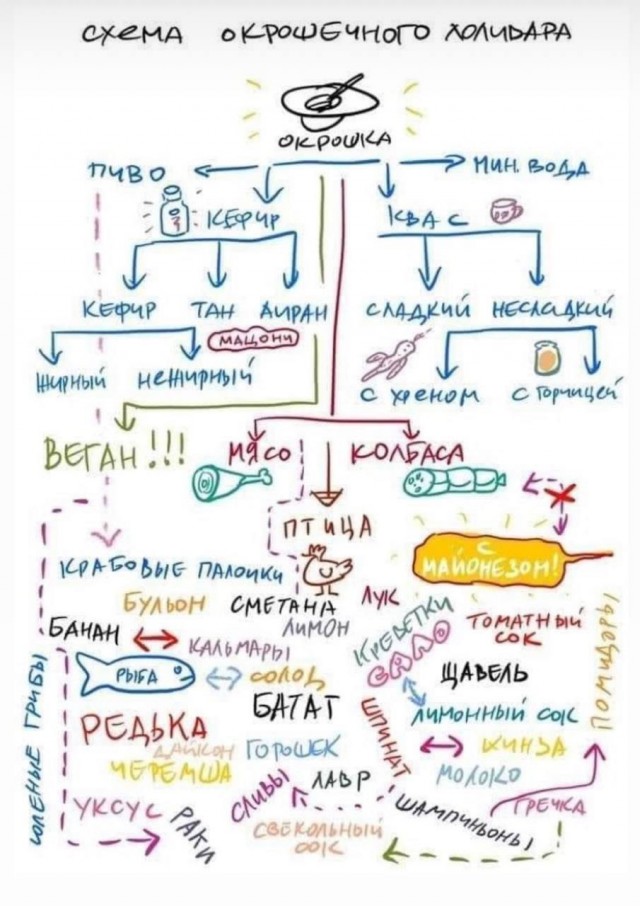 СХЕМА ОКРОШЕЧНОГО ХОЛИВАРА
ОКРОШКА
ПИВО
МИН. ВОДА
КЕФИР
КВАС
КЕФИР ТАН АЙРАН
СЛАДКИЙ НЕСЛАДКИЙ
МАЦОНИ
ЖИРНЫЙ НЕЖИРНЫЙ
С ХРЕНОМ С ГОРЧИЦЕЙ
ВЕГАН!!!
МЯСО
КОЛБАСА
ПТИЦА
С МАЙОНЕЗОМ!
КРАБОВЫЕ ПАЛОЧКИ
БУЛЬОН
СМЕТАНА
ЛУК
БАНАН
КАЛЬМАРЫ
ЛИМОН
КРЕВЕТКИ
САЛО
ТОМАТНЫЙ
СОК
ПОМИДОРЫ
РЫБА
СОЛОД
ЩАВЕЛЬ
БАТАТ
ШПИНАТ
ЛИМОННЫЙ СОК
СОЛЕНЫЕ ГРИБЫ
РЕДЬКА
ДАЙКОН
ГОРОШЕК
КИНЗА
ЧЕРЕМША
СЛИВЫ
ЛАВР
МОЛОКО
УКСУС
РАКИ
СВЕКОЛЬНЫЙ
СОК
ШАМПИНЬОНЫ
ГРЕЧКА